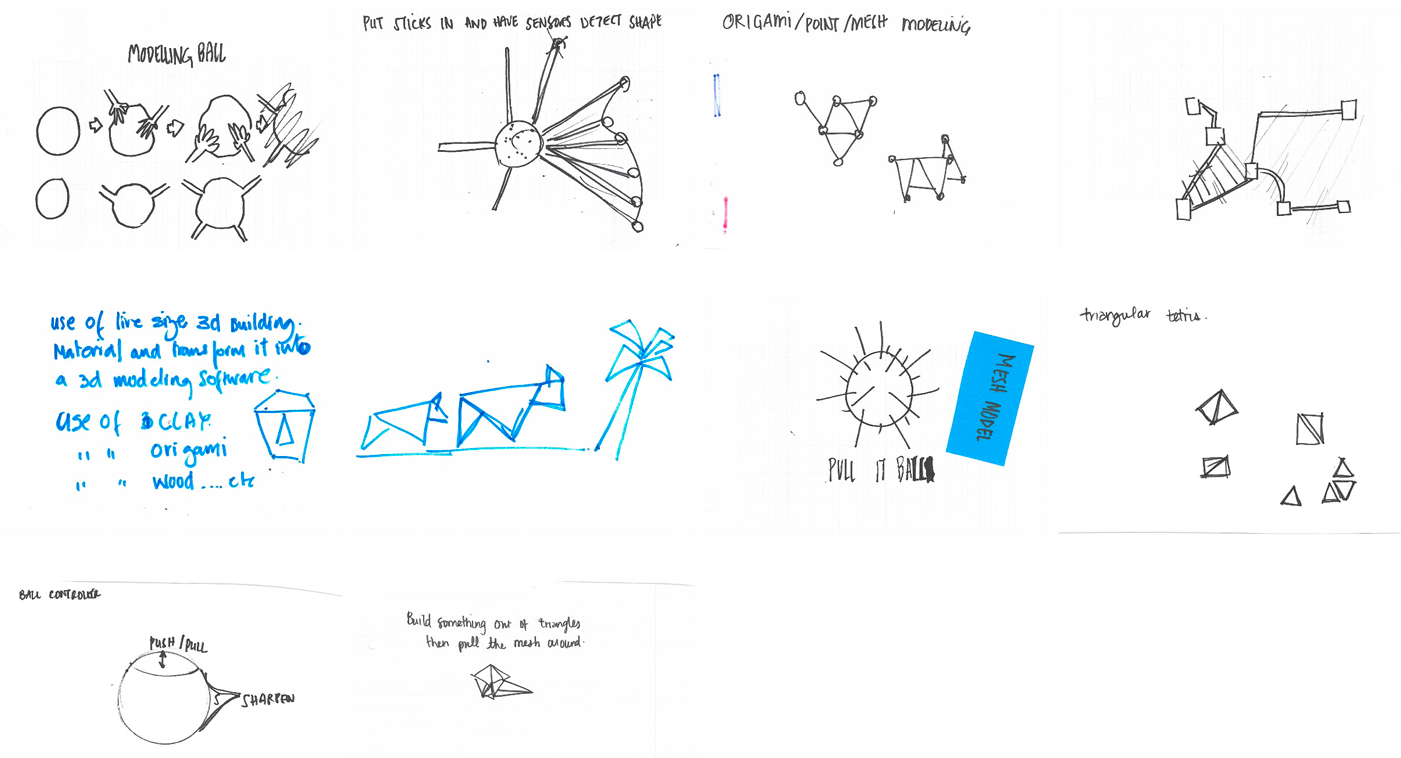 MODELLING BALL
PUT STICKS IN AND HAVE SENSORS DETECT SHAPE
ORIGAMI/POINT/MESH MODELING
use of live size 3d Building.
Material and transform it into
a 3d modeling software.
use of CLAY
" " origami
" " wood .... etc
PULL IT BALL
MESH MODEL
triangular tetris.
BALL CONTROLLER
PUSH/PULL
SHARPEN
Build something out of triangles
then pull the mesh around.